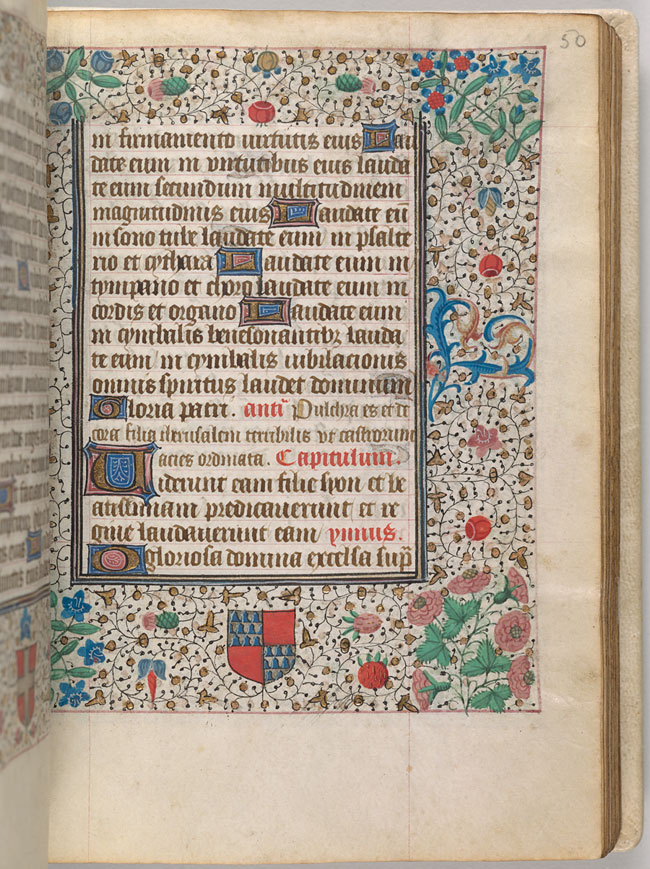 50
in firmamento virtutis eius Lau
date eum in virtutibus eius lauda
te eum secundum multitudinem
magnitudinis eius Laudate eu
in sono tube laudate eum in psalte
rio et cythara Laudate eum in
tympano et choro laudate eum in
cordis et organo Laudate eum
in cymbalis benesonantibz lauda
te eum in cymbalis iubilacionis
omnis spiritus laudet dominum
Gloria patri. ant Pulchra es et de
cora filia iherusalem terribilis vt castrorum
acies ordinata. Capitulum.
Uiderunt eam filie syon et be
atissimam predicauerunt et re
gine laudauerunt eam ymnus.
O gloriosa domina excelsa sup